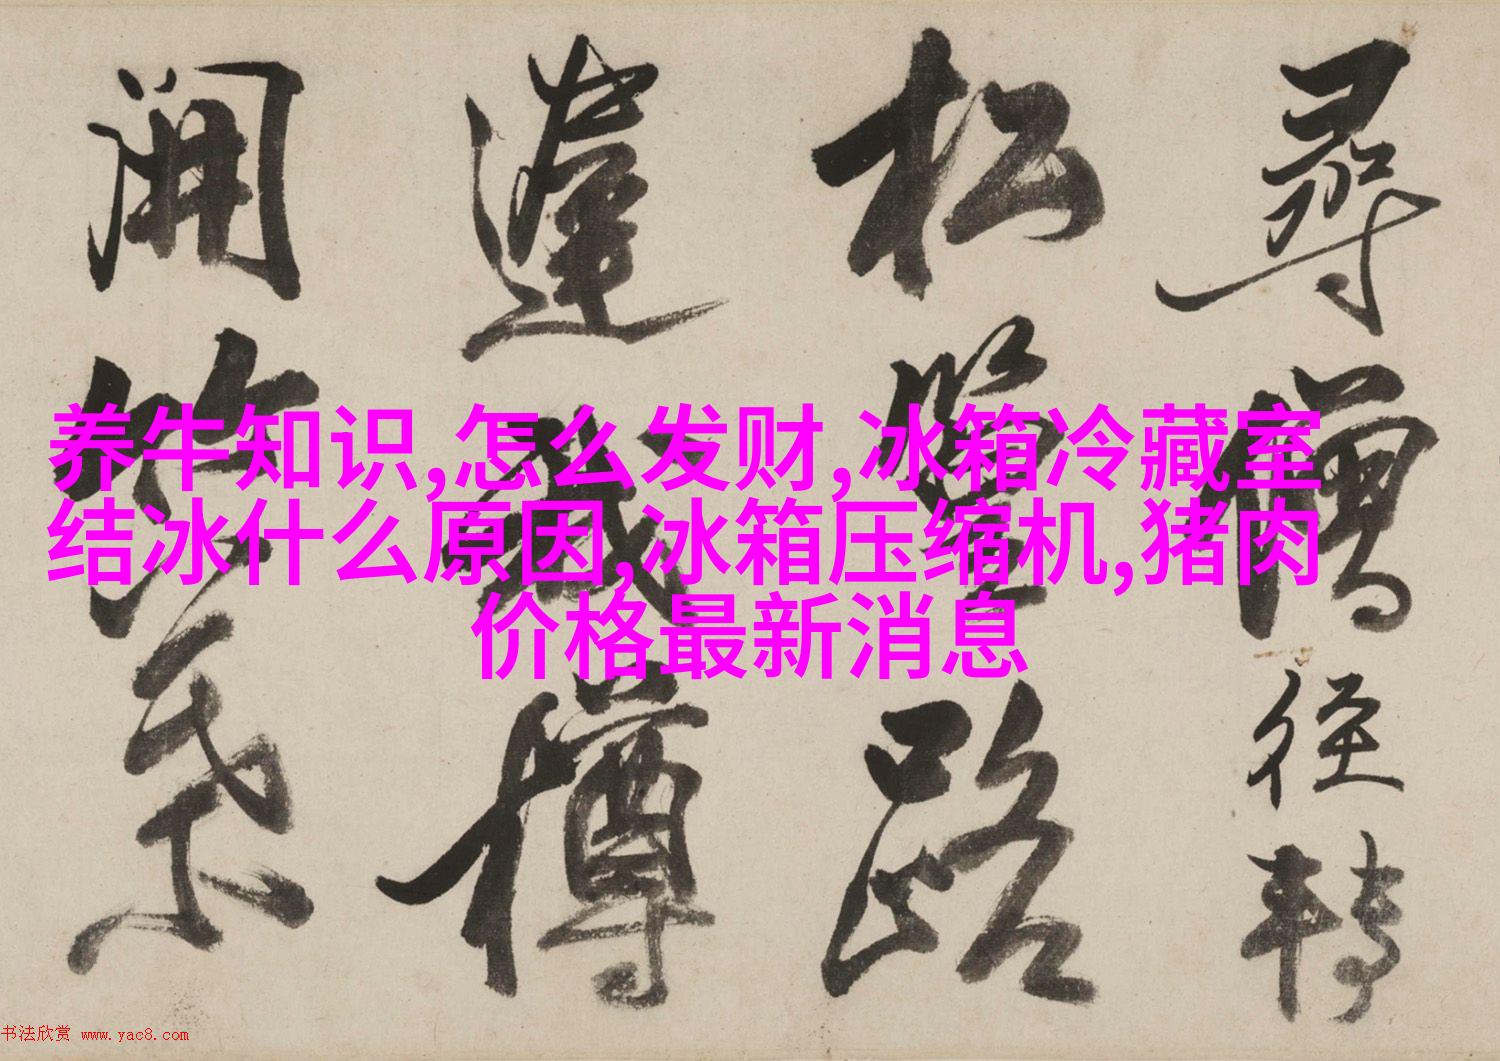 尋僧徑轉
松蹬路
蓬
樽
開
养牛知识,怎么发财,冰箱冷藏室
结冰什么原因,冰箱压缩机,猪肉
价格最新消息
书法欣赏 www.yac8.com